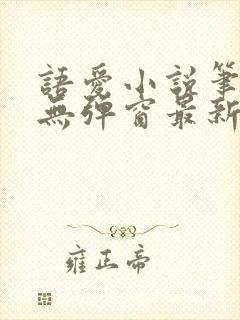 語愛小說筆
無彈窗最新
雍正帝